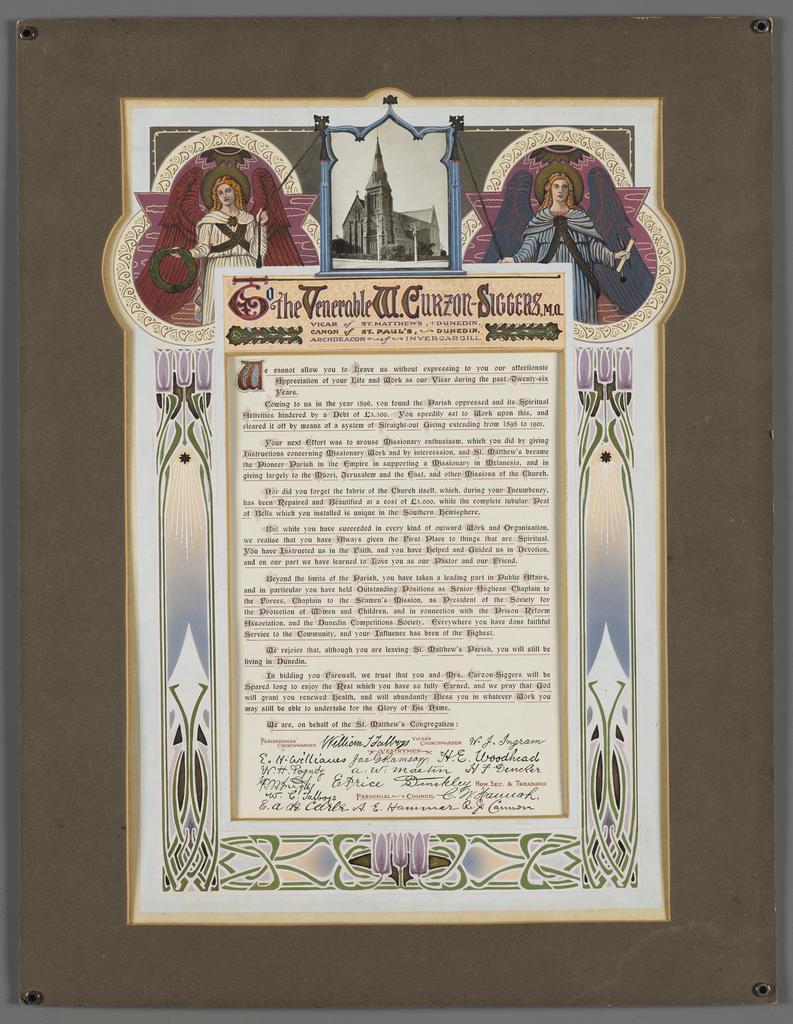 To the Venerable W. Curzon-Siggers, M.A.
VICAR of ST. MATTHEWS, DUNEDIN.
CANON of ST. PAUL'S, DUNEDIN.
ARCHDEACON of INVERCARGILL.
We cannot allow you to Leave us without expressing to you our affectionate
Appreciation of your Life and Work as our Vicar during the past Twenty-six
Years.
Coming to us in the year 1896, you found the Parish oppressed and its Spiritual
Activities hindered by a Debt of £3,300. You speedily set to Work upon this, and
cleared it off by means of a system of Straight-out Giving extending from 1898 to 1901.
Your next Effort was to arouse Missionary enthusiasm, which you did by giving
Instructions concerning Missionary Work and by intercession, and St. Matthew's became
the Pioneer Parish in the Empire in supporting a Missionary in Melanesia, and in
giving largely to the Maori, Jerusalem and the East, and other Missions of the Church.
Nor did you forget the fabric of the Church itself, which, during your Incumbency,
has been Repaired and Beautified at a cost of £3,000, while the complete tubular Peal
of Bells which you installed is unique in the Southern Hemisphere.
But while you have succeeded in every kind of outward Work and Organisation,
we realise that you have Always given the First Place to things that are Spiritual.
You have Instructed us in the Faith, and you have Helped and Guided us in Devotion,
and on our part we have learned to Love you as our Pastor and our Friend.
Beyond the limits of the Parish, you have taken a leading part in Public Affairs,
and in particular you have held Outstanding Positions as Senior Anglican Chaplain to
the Forces, Chaplain to the Seamen's Mission, as President of the Society for
the Protection of Women and Children, and in connection with the Prison Reform
Association, and the Dunedin Competitions Society. Everywhere you have done faithful
Service to the Community, and your Influence has been of the Highest.
We rejoice that, although you are leaving St. Matthew's Parish, you will still be
living in Dunedin.
In bidding you Farewell, we trust that you and Mrs. Curzon-Siggers will be
Spared long to enjoy the Rest which you have so fully Earned, and we pray that God
will grant you renewed Health, and will abundantly Bless you in whatever Work you
may still be able to undertake for the Glory of His Name.
We are, on behalf of the St. Matthew's Congregation:
PARISHIONERS' CHURCHWARDEN William Talboys VICAR'S CHURCHWARDEN W. J. Ingram
VESTRYMEN
E. H. Williams Jas G Ramsay H. E. Woodhead
W. H. A. W. Martin H F Dencker
E Price Dunkley HON. SEC. & TREASURER
W. C. Talboys PAROCHIAL COUNCIL C. W. Hannah.
A. E. Hammer R. J. Cannon